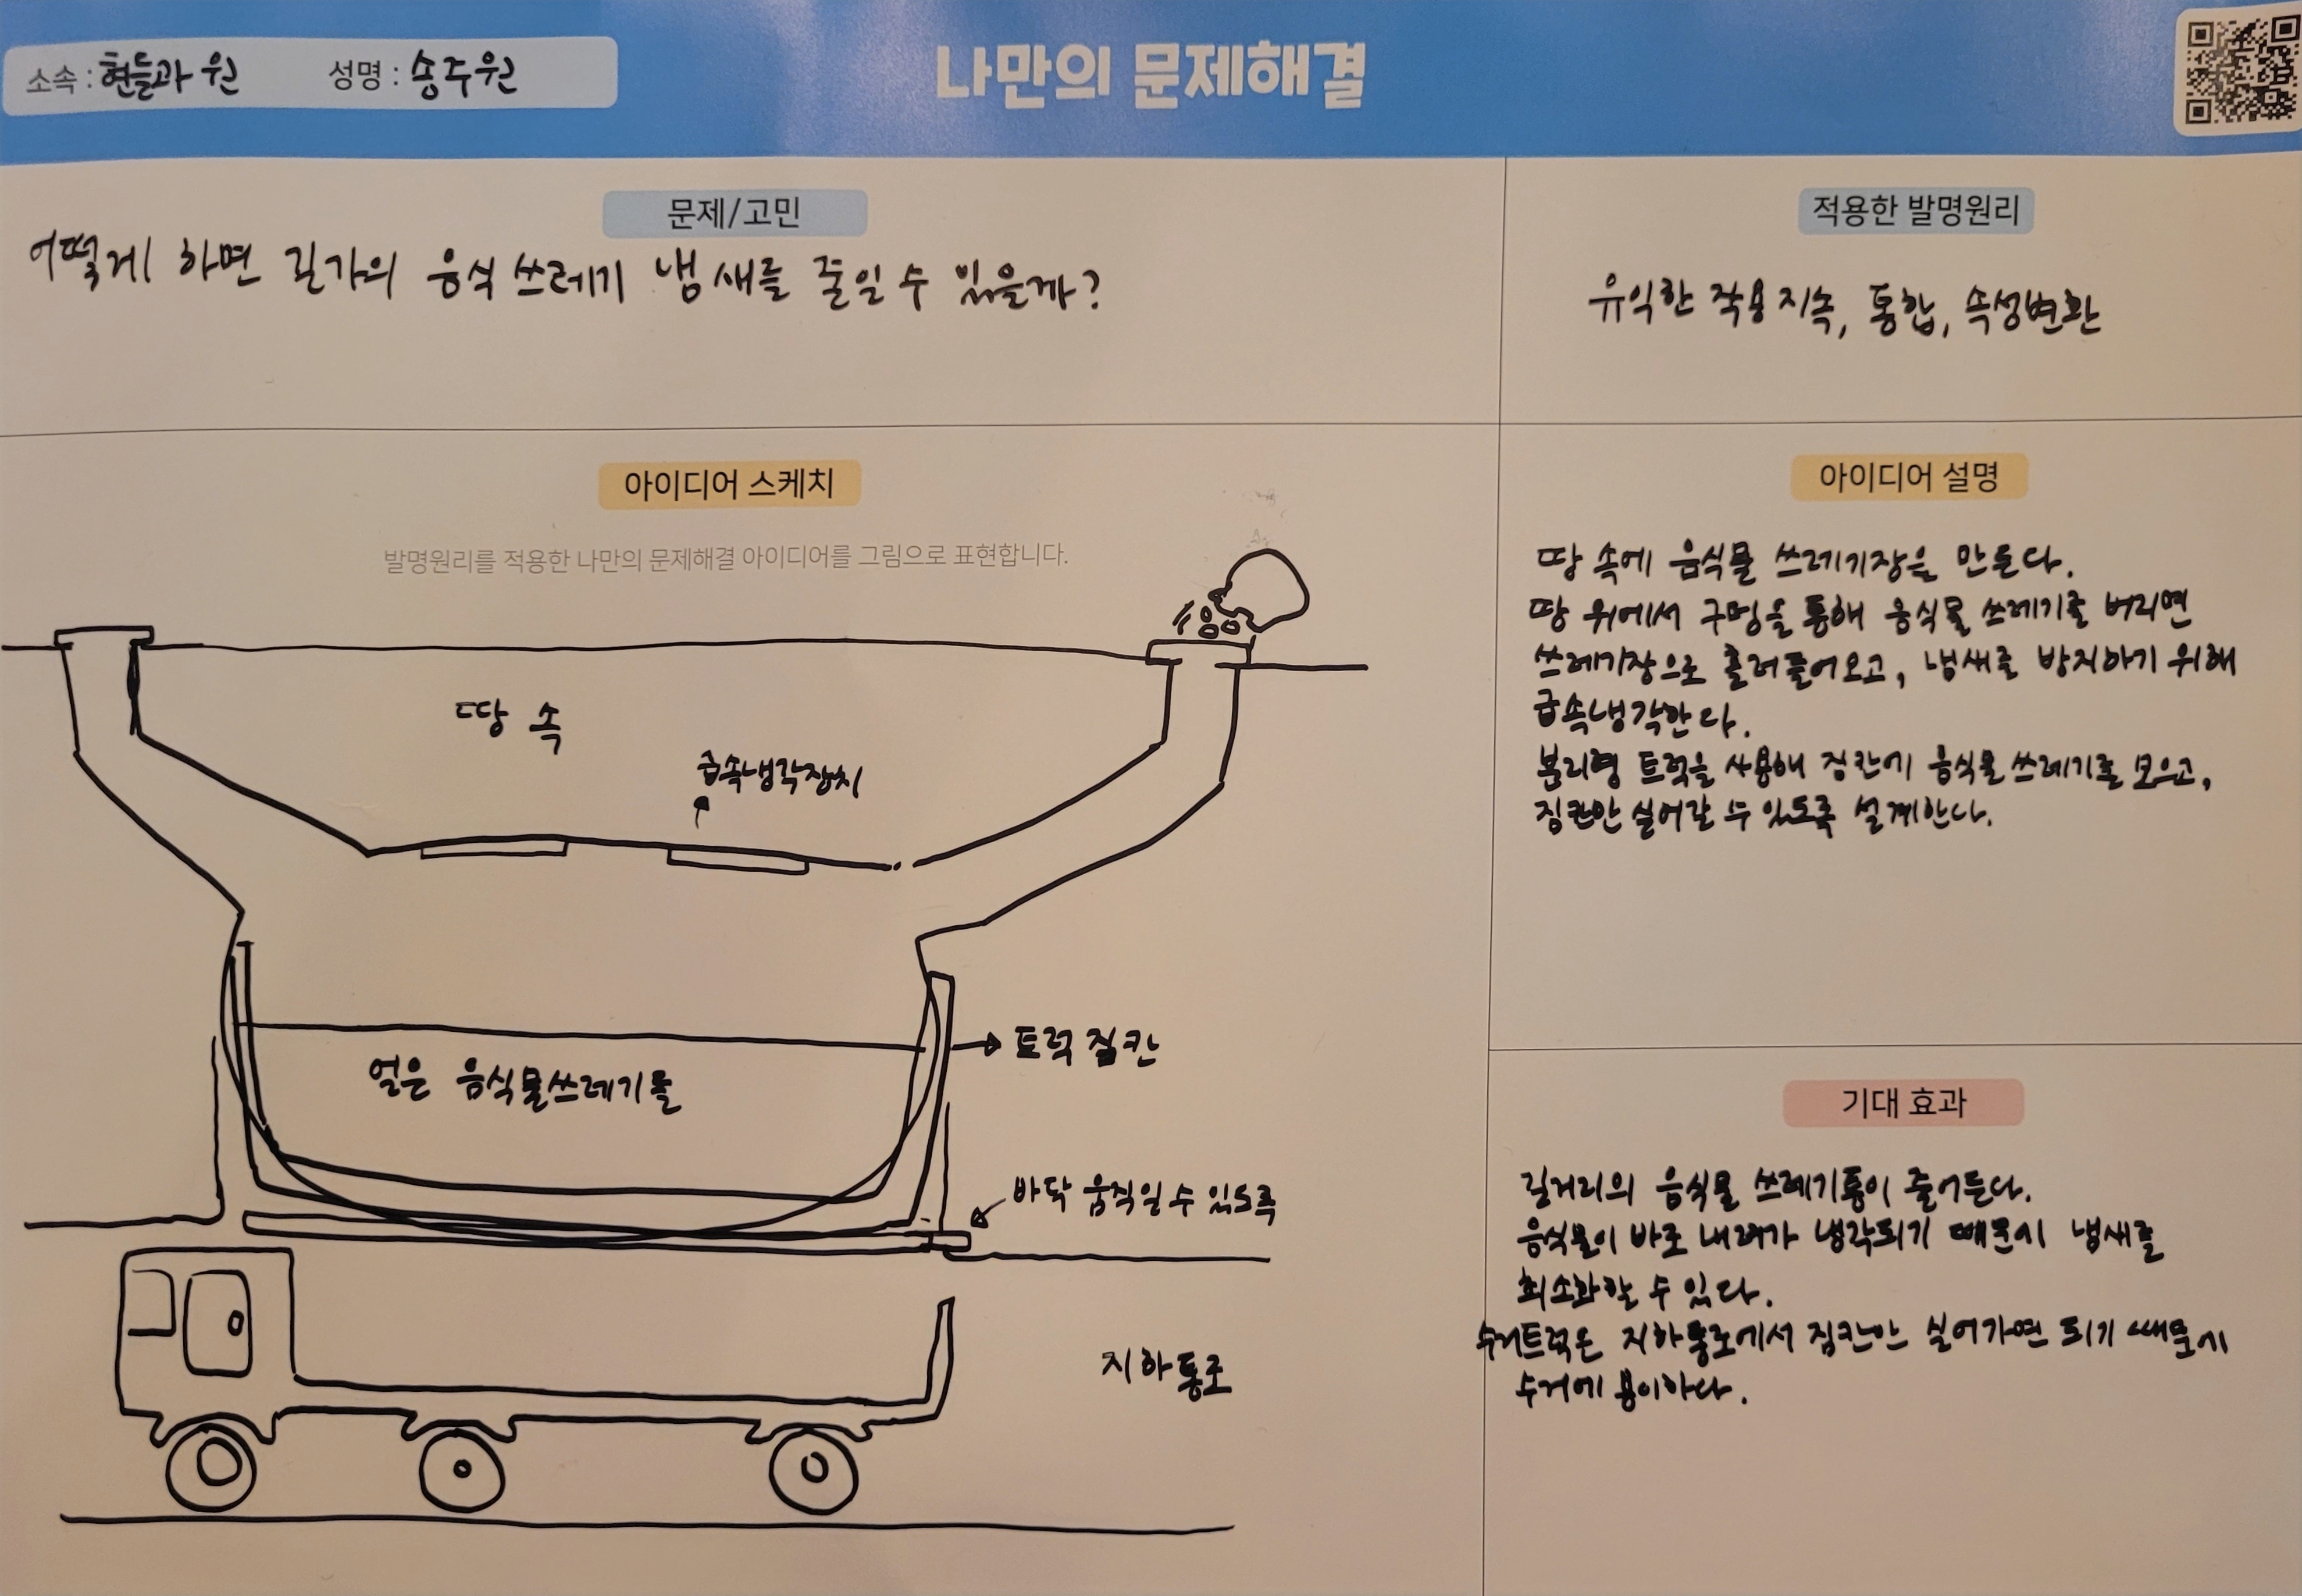 소속 : 현들과 원 성명 : 송주원
나만의 문제해결
문제/고민
어떻게 하면 길가의 음식 쓰레기 냄새를 줄일 수 있을까?
적용한 발명원리
유익한 작용 지속, 통합, 속성변환
아이디어 스케치
발명원리를 적용한 나만의 문제해결 아이디어를 그림으로 표현합니다.
땅 속
급속냉각장치
얼은 음식물쓰레기를
트럭 짐칸
바닥 움직일 수 있도록
지하통로
아이디어 설명
땅 속에 음식물 쓰레기장을 만든다.
땅 위에서 구멍을 통해 음식물 쓰레기를 버리면
쓰레기장으로 흘러들어오고, 냄새를 방지하기 위해
급속냉각한다.
분리형 트럭을 사용해 짐칸에 음식물 쓰레기를 모으고,
짐칸만 실어갈 수 있도록 설계한다.
기대 효과
길거리의 음식물 쓰레기통이 줄어든다.
음식물이 바로 내려가 냉각되기 때문에 냄새를
최소화할 수 있다.
수거트럭은 지하통로에서 짐칸만 실어가면 되기 때문에
수거에 용이하다.